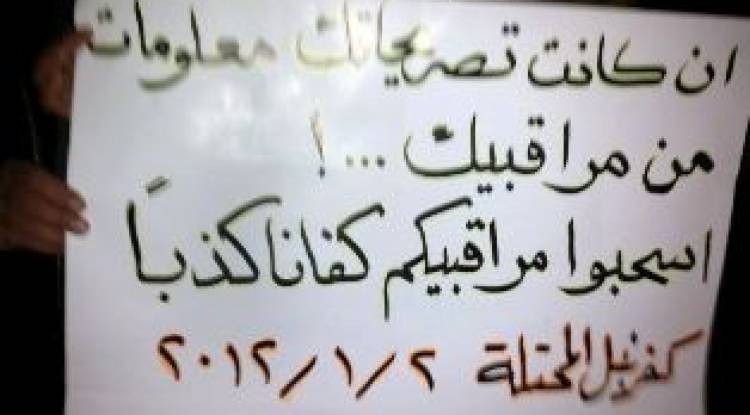 ان كانت تصريحاتك معلومات
من مراقبيك ...!
اسحبوا مراقبيكم كفانا كذباً
كفرنبل المحتلة ٢ / ١ / ٢٠١٢